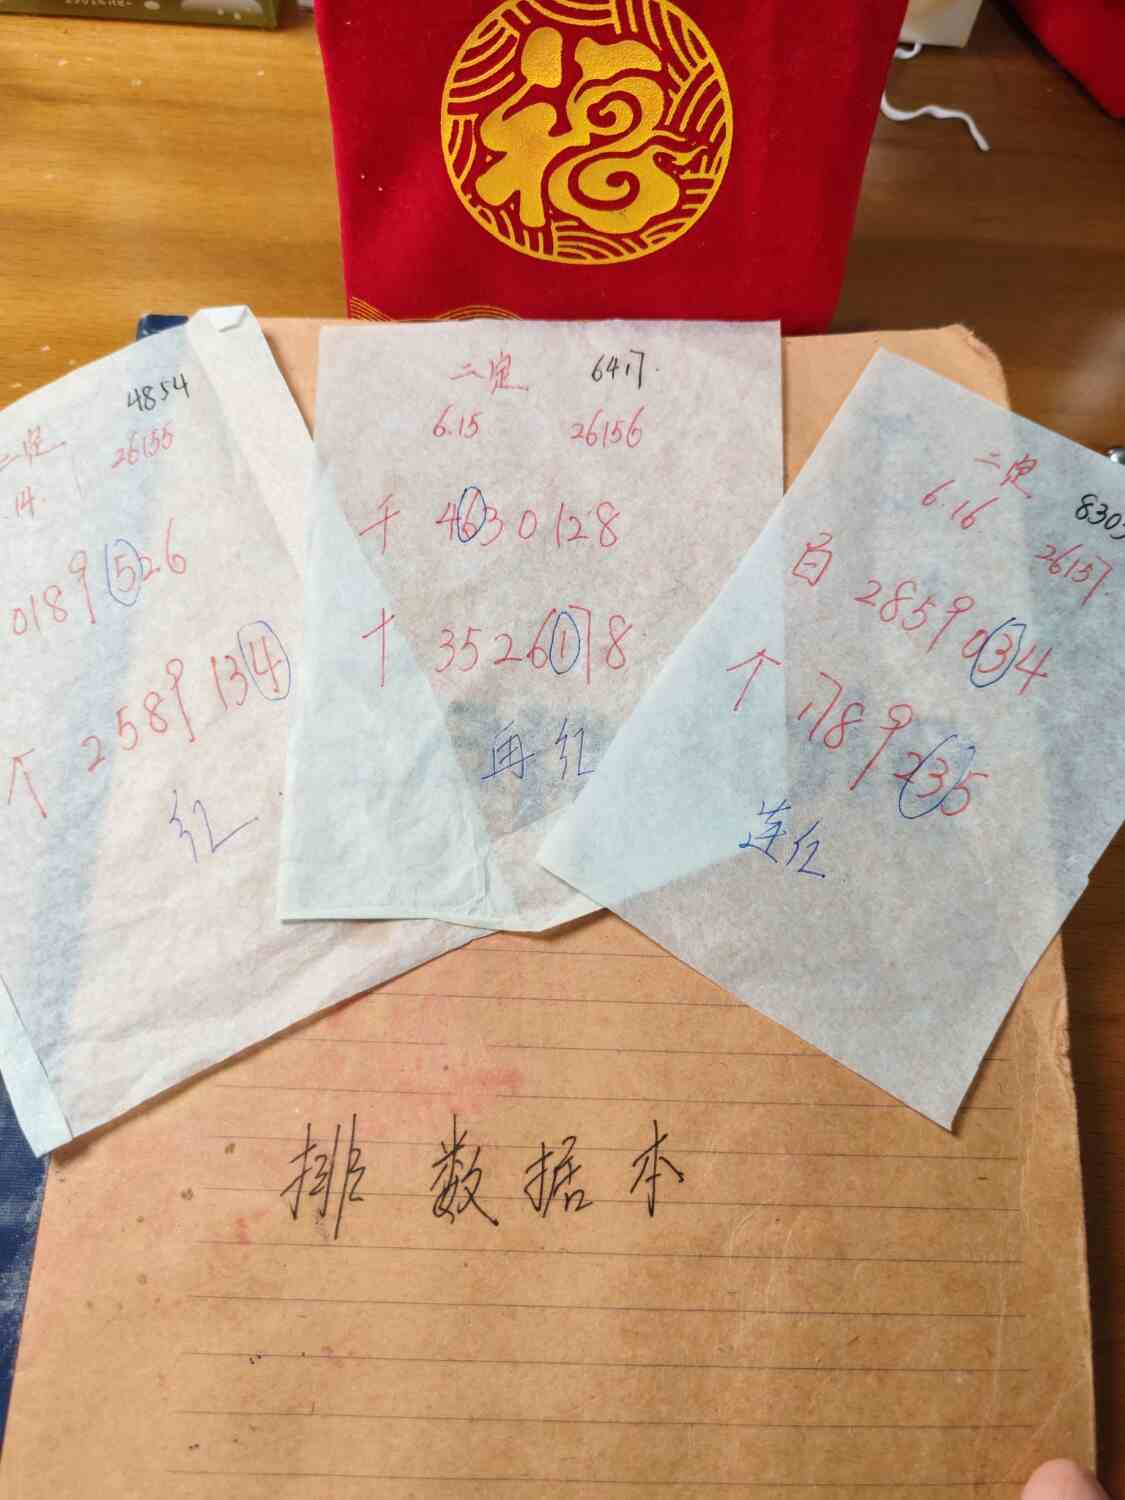 福
4854
二定
26155
.14.
0189526
个 2589134
红
二定 6417.
6.15 26156
千 4630128
十 3526178
再红
二定
8303
6.16
26157.
百 2859034
个 1789235
连红
排数据本